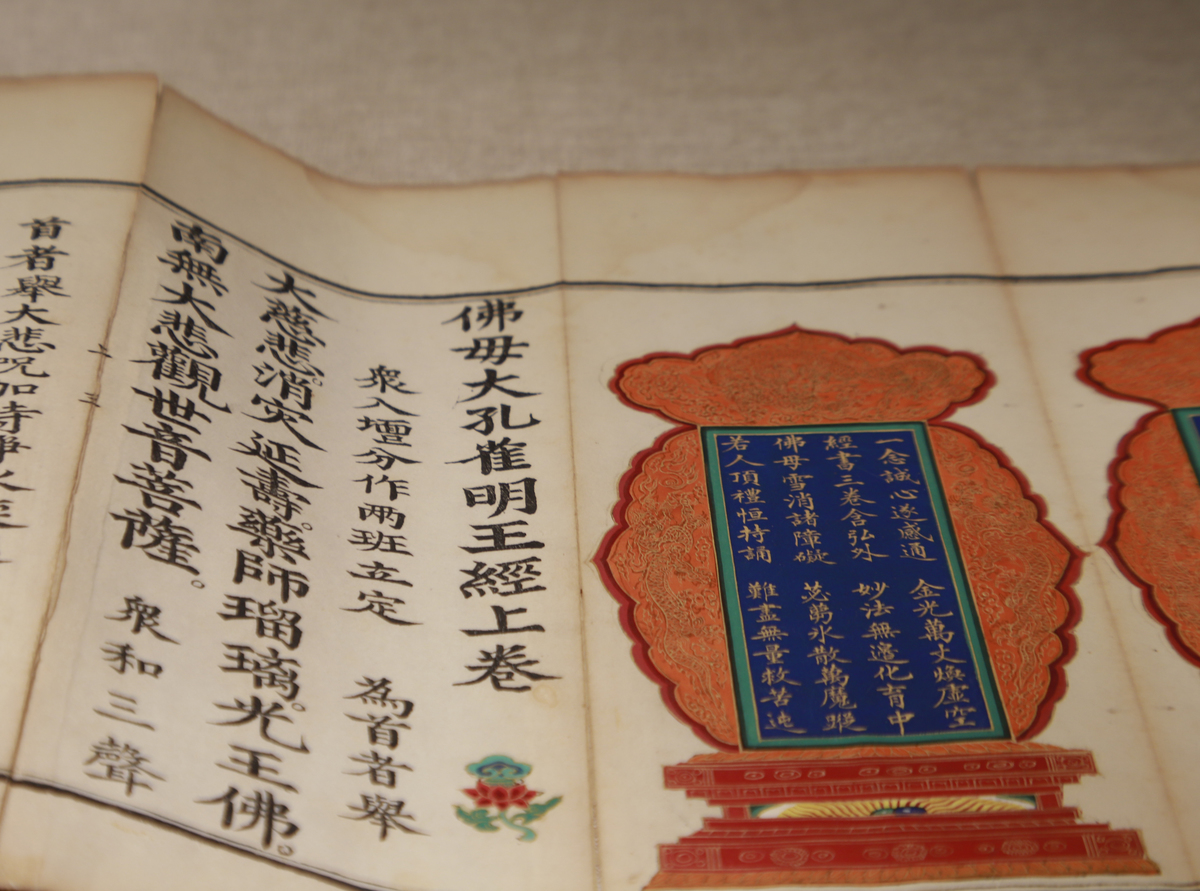 一念誠心遂感通 金光萬丈煥虛空
經書三卷含弘外 妙法無邊化育中
佛母雪消諸障礙 苾蒭氷散萬魔蹤
若人頂禮恒持誦 難盡無量救苦
佛母大孔雀明王經上卷
衆入壇分作两班立定 為首者舉
大慈悲。消灾延壽。藥師瑠璃光王佛。
南無大悲觀世音菩薩。 衆和三聲
首者舉大悲咒加持淨水